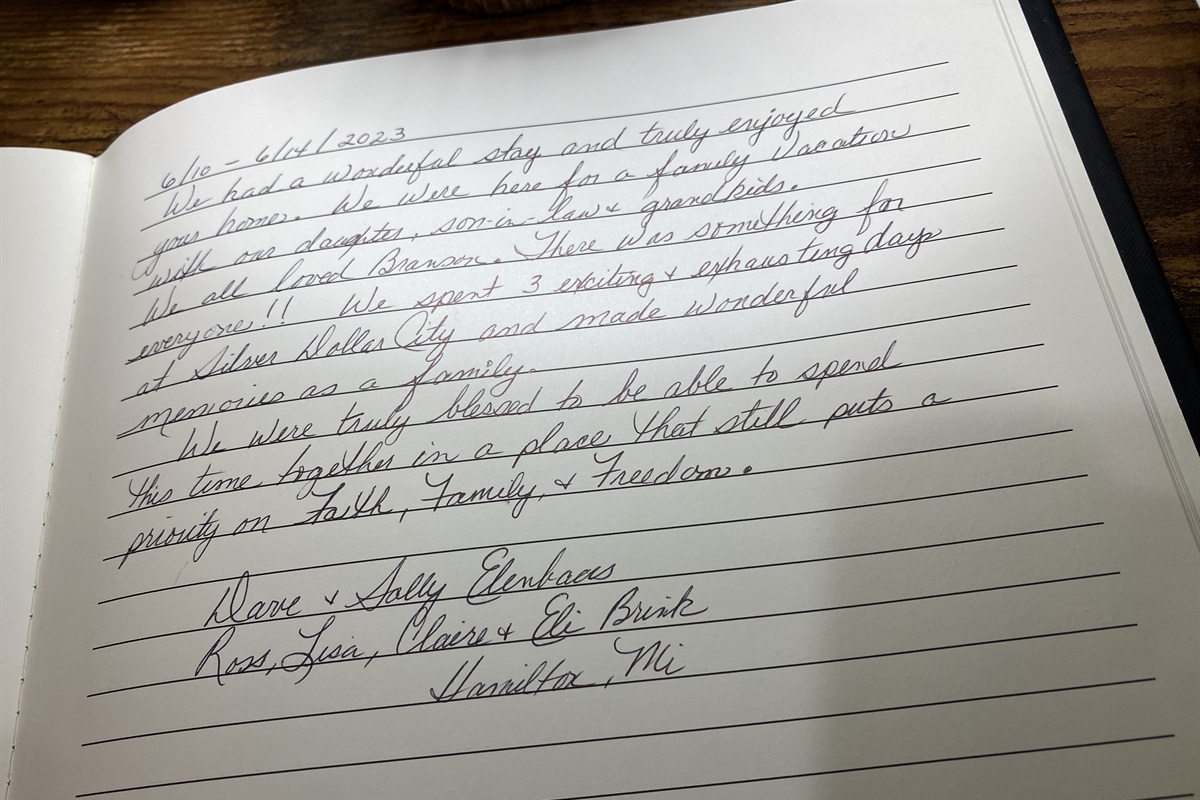 6/10 - 6/14/2023
We had a wonderful stay and truly enjoyed
your home. We were here for a family vacation
with our daughter, son-in-law & grandkids.
We all loved Branson. There was something for
everyone!! We spent 3 exciting & exhausting days
at Silver Dollar City and made wonderful
memories as a family.
We were truly blessed to be able to spend
this time together in a place that still puts a
priority on Faith, Family, & Freedom.
Dave & Sally Elenbaas
Ross, Lisa, Claire & Eli Brink
Hamilton, Mi